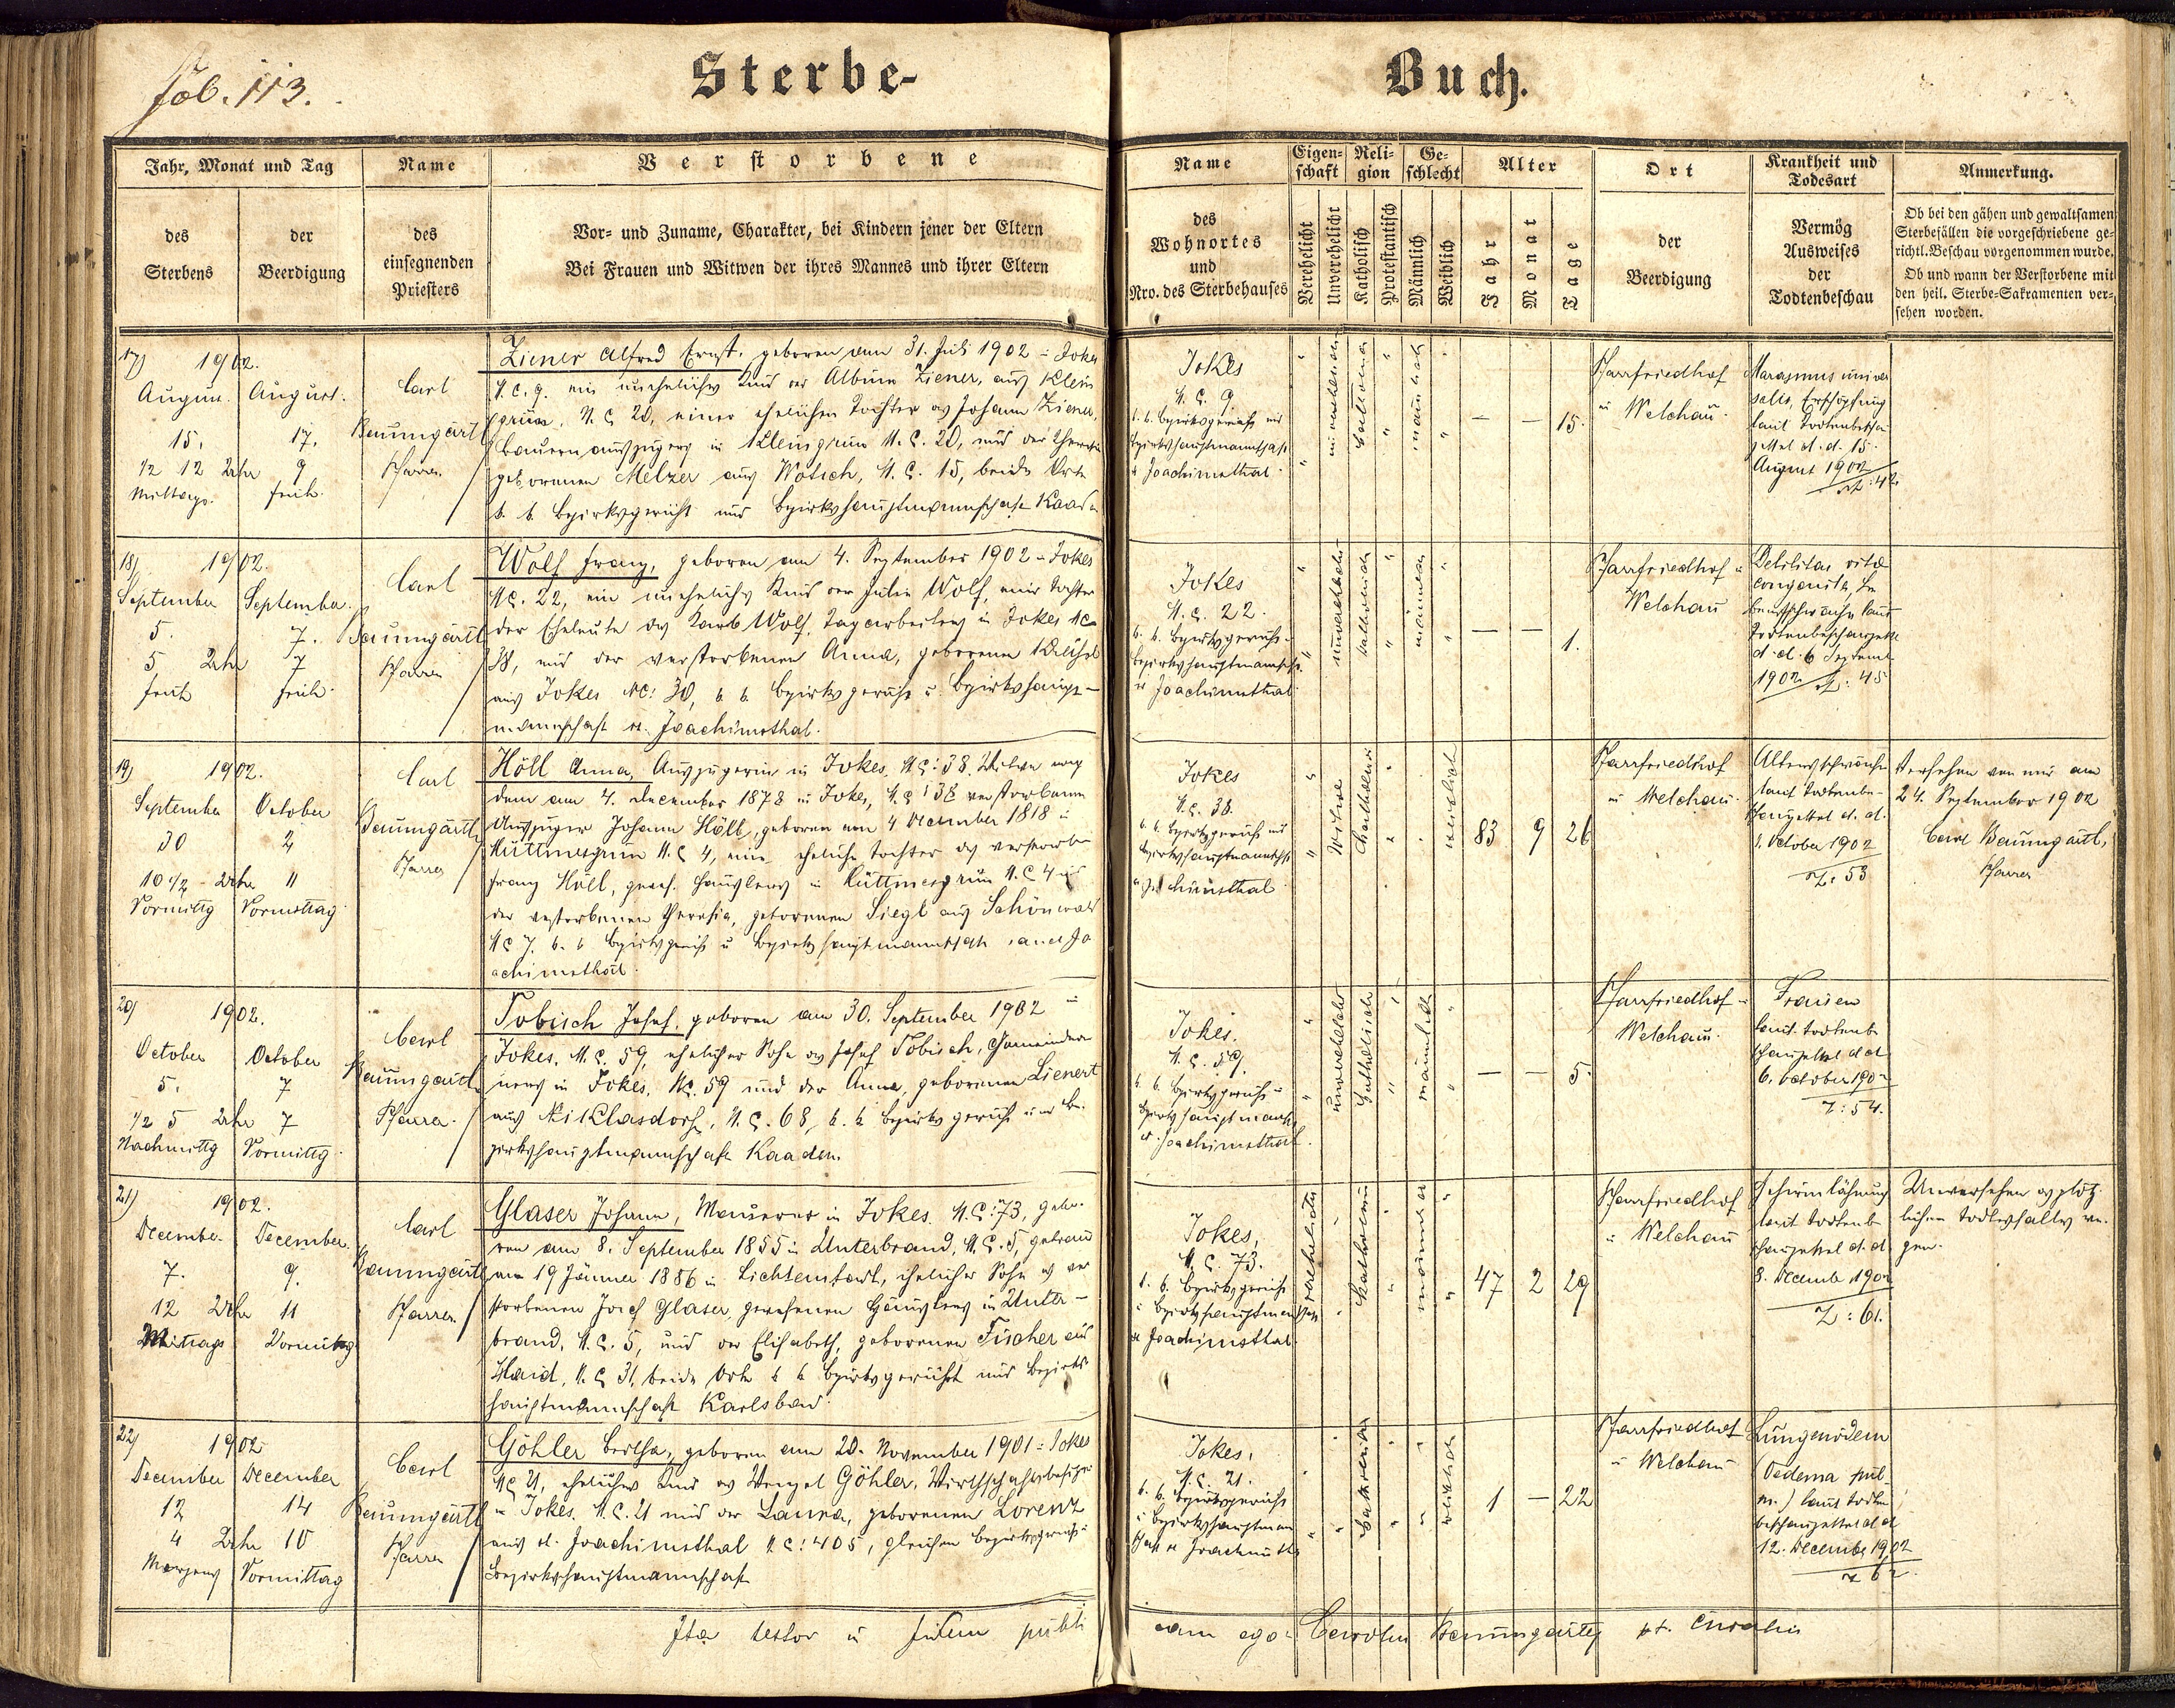 fol. 113.
Sterbe-
Buch.
Jahr, Monat und Tag
des
Sterbens
der
Beerdigung
Name
des
einsegnenden
Priesters
Verstorbene
Vor- und Zuname, Charakter, bei Kindern jener der Eltern
Bei Frauen und Witwen der ihres Mannes und ihrer Eltern
Name
des
Wohnortes
und
Nro. des Sterbehauses
Eigen-
schaft
Verehelicht
Unverehelicht
Reli-
gion
Katholisch
Protestantisch
Ge-
schlecht
Männlich
Weiblich
Alter
Jahr
Monat
Tage
Ort
der
Beerdigung
Krankheit und
Todesart
Vermög
Ausweises
der
Todtenbeschau
Anmerkung.
Ob bei den gähen und gewaltsamen
Sterbefällen die vorgeschriebene ge-
richtl. Beschau vorgenommen wurde.
Ob und wann der Verstorbene mit
den heil. Sterbe-Sakramenten ver-
sehen worden.
17) 1902.
August. August.
15. 17.
1/2 12 Uhr 9
Mittags. früh.
Carl
Baumgartl
Pfarrer
Ziener Alfred Ernst, geboren am 31. Juli 1902 in Jokes
N.C. 9. ein uneheliches Kind der Albine Ziener, aus Klein
grün, N.C. 20, einer ehelichen Tochter des Johann Ziener,
Bauernauszüglers in Kleingrün N.C. 20, und der Theresia
geborenen Melzer aus Wotsch, N.C. 15, beide Orte
k. k. Bezirksgericht und Bezirkshauptmannschaft Kaaden
Jokes
N.C. 9
k. k. Bezirksgericht und
Bezirkshauptmannschaft
Joachimsthal
unverehelicht
katholisch
männlich
— — 15.
Pfarrfriedhof
in Welchau.
Marasmus univer
salis, Erschöpfung
laut Todtenbeschau
zettel d. d. 15.
August 1902
Z: 42
18) 1902.
September September.
5. 7.
5 Uhr 7
früh früh.
Carl
Baumgartl
Pfarrer
Wolf Franz, geboren am 4. September 1902 in Jokes
N.C. 22, ein uneheliches Kind der Julie Wolf, einer Tochter
der Eheleute des Karl Wolf, Tagarbeiters in Jokes NC
38, und der verstorbenen Anna, geborenen
aus Jokes NC: 30, k. k. Bezirksgericht u. Bezirkshaupt-
mannschaft St. Joachimsthal.
Jokes
N.C. 22.
k. k. Bezirksgericht
Bezirkshauptmannschft.
St. Joachimsthal
unverehelicht
katholisch
männlich
— — 1.
Pfarrfriedhof in
Welchau
Debilitas vitae
congenita, Le
bensschwäche laut
Todtenbeschauzettel
d. d. 6 September
1902 Z: 45
19) 1902.
September October
30 2
10 1/2 Uhr 11
Vormittg Vormittag
Carl
Baumgartl
Pfarrer
Höll Anna, Auszüglerin in Jokes, N.C: 38. Witwe nach
dem am 4. December 1878 in Jokes, N.C: 38 verstorbenen
Auszügler Johann Höll, geboren am 4 December 1818 in
Hüttmesgrün N.C 4, eine eheliche Tochter des verstorbenen
Franz Höll, gewes. Häuslers in Hüttmesgrün N.C 4 und
der verstorbenen Theresia, geborenen Siegl aus Schönwald
N.C 7. k. k. Bezirksgericht u Bezirkshauptmannschaft Sanct Jo
achimsthal.
Jokes
N.C. 38.
k. k. Bezirksgericht und
Bezirkshauptmannschft
Joachimsthal
Witwe
katholisch
weiblich
83 9 26
Pfarrfriedhof
in Welchau.
Altersschwäche
laut Todtenbe-
schauzettel d. d.
1. October 1902
Z: 53
Versehen von mir am
24. September 1902
Carl Baumgartl,
Pfarrer
20) 1902.
October October
5. 7
1/2 5 Uhr 7
Nachmittg Vormittg.
Carl
Baumgartl
Pfarrer.
Tobisch Josef, geboren am 30. September 1902 in
Jokes, N.C. 59, ehelicher Sohn des Josef Tobisch, Gemeindedie
ners in Jokes, NC. 59 und der Anna, geborenen Lienert
aus Niklasdorf, N.C. 68, k. k. Bezirksgericht und Be-
zirkshauptmannschaft Kaaden.
Jokes.
N.C. 59.
k. k. Bezirksgericht u
Bezirkshauptmansch
St. Joachimsthal.
unverehelicht
katholisch
männlich
— — 5.
Pfarrfriedhof in
Welchau.
Fraisen
laut Todtenbe
schauzettel d d
6. October 1902
Z: 54.
21) 1902.
December. December.
7. 9.
12 Uhr 11
Mittags Vormittag
Carl
Baumgartl
Pfarrer
Glaser Johann, Maurer in Jokes. N.C: 73, gebo-
ren am 8. September 1855 in Unterbrand, N.C. 5, getraut
am 19 Jänner 1886 in Lichtenstadt, ehelicher Sohn des ver
storbenen Josef Glaser, gewesenen Häuslers in Unter-
brand, N.C. 5, und der Elisabeth, geborenen Fischer aus
Haid, N.C 31, beide Orte k k Bezirksgericht und Bezirks
hauptmannschaft Karlsbad.
Jokes,
N.C. 73.
k. k. Bezirksgericht
u Bezirkshauptmanschaft
St Joachimsthal
verehelicht
katholisch
männlich
47 2 29
Pfarrfriedhof
in Welchau
Gehirnlähmung
laut Todtenbe
schauzettel d. d.
8. December 1902
Z: 61.
Unversehen des plötz-
lichen Todesfalles we-
gen.
22) 1902
December December
12 14
4 Uhr 10
Morgens Vormittag
Carl
Baumgartl
Pfarrer
Göhler Bertha, geboren am 20. November 1901 in Jokes
NC 21, eheliches Kind des Wenzel Göhler, Wirthschaftsbesitzers
in Jokes. N.C. 21 und der Laura, geborenen Lorenz
aus St. Joachimsthal N.C: 405, gleichen Bezirksgericht u
Bezirkshauptmannschaft
Jokes,
N.C. 21.
k. k. Bezirksgericht
u Bezirkshauptman
schaft St Joachimsth
katholisch
weiblich
1 — 22
Pfarrfriedhof
in Welchau
Lungenödem
(Oedema pul-
m.) laut Todten
beschauzettel d d
12. December 1902
Z 62.
Ita testor in fidem publi
cam ego Carolus Baumgartl pt. curatus